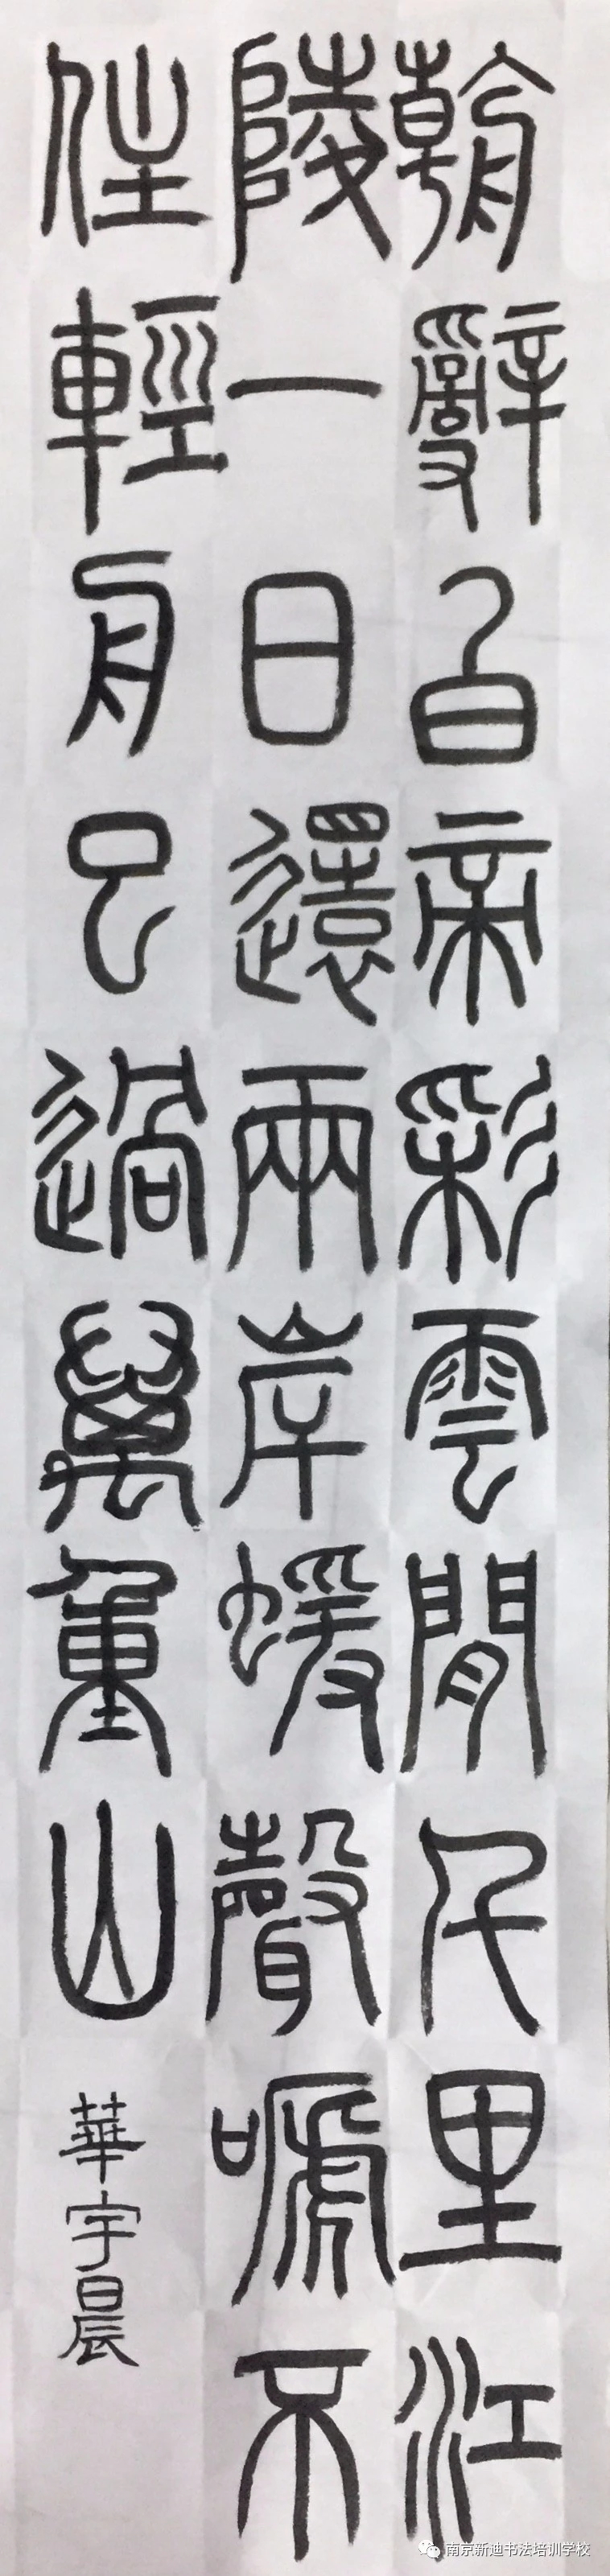 朝辭白帝彩雲間千里江
陵一日還兩岸蝯聲嗁不
住輕舟已過萬重山
華宇晨
南京新迪书法培训学校